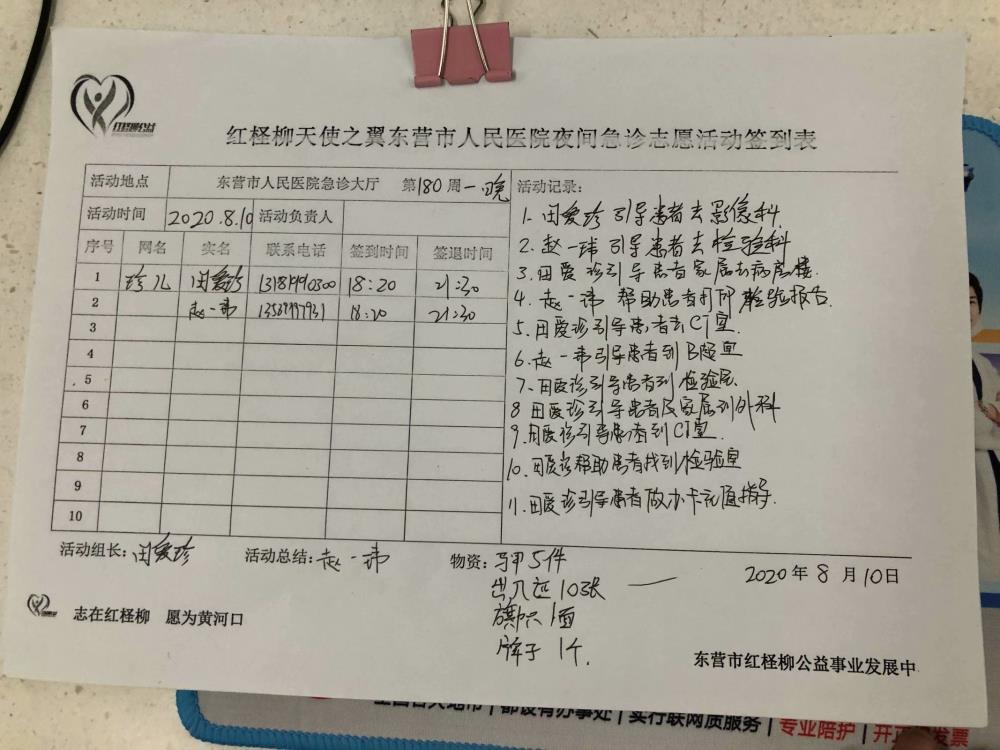 红柽柳公益
红柽柳天使之翼东营市人民医院夜间急诊志愿活动签到表
活动地点 东营市人民医院急诊大厅 第180周一晚
活动时间 2020.8.10 活动负责人
序号 网名 实名 联系电话 签到时间 签退时间
1 珍儿 闵爱珍 18:20 21:30
2 赵一玮 18:20 21:30
3
4
5
6
7
8
9
10
活动记录:
1. 闵爱珍引导患者去影像科.
2. 赵一玮引导患者去检验科
3. 闵爱珍引导患者家属去病房楼.
4. 赵一玮帮助患者打印检验报告.
5. 闵爱珍引导患者去CT室.
6. 赵一玮引导患者到B超室
7. 闵爱珍引导患者到检验层.
8 闵爱珍引导患者及家属到外科
9. 闵爱珍引导患者到CT室.
10. 闵爱珍帮助患者找到检验室
11. 闵爱珍引导患者做办卡充值指导.
活动组长:闵爱珍 活动总结:赵一玮 物资:马甲5件
出入证10张
旗帜1面
牌子1个.
2020年8月10日
志在红柽柳 愿为黄河口
东营市红柽柳公益事业发展中
都设有办事处|实行联网质服务|专业陪护|开正
发票